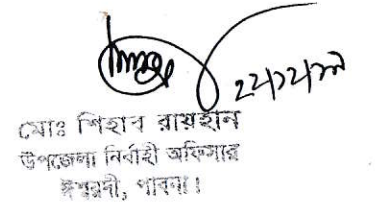 ২২/১২/১৯
মোঃ শিহাব রায়হান
উপজেলা নির্বাহী অফিসার
ঈশ্বরদী, পাবনা।